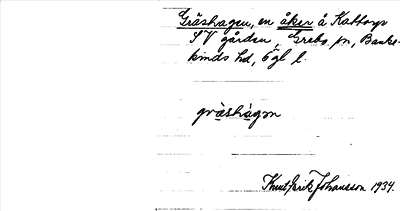 Gräshagen, en åker å Kattorp
SV gården, Grebo sn, Banke-
kinds hd, Ögl l.
gräshàgən
Knut Erik Johansson 1934.